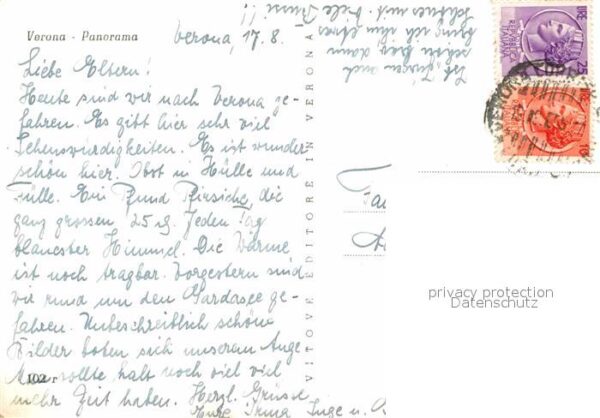 Verona - Panorama
Verona, 17.8.
Liebe Eltern!
Heute sind wir nach Verona ge-
fahren. Es gibt hier sehr viel
Sehenswürdigkeiten. Es ist wunder
schön hier. Obst in Hülle und
Fülle. Ein Pfund Pfirsiche, die
ganz grossen 25 d. Jeden Tag
blauester Himmel. Die Wärme
ist noch tragbar. Vorgestern sind
wir rund um den Gardasee ge-
fahren. Unbeschreiblich schöne
Bilder boten sich unserem Auge
Man sollte halt noch viel viel
mehr Zeit haben. Herzl. Grüsse
Eure Irma Inge u.
102
VITOVE EDITORE IN VERONA
Ist auch
schön hier dann
bring ich ihm etwas
Schönes mit. Viele
LIRE
REPUBBLICA ITALIANA
25
10
VERONA
privacy protection
Datenschutz